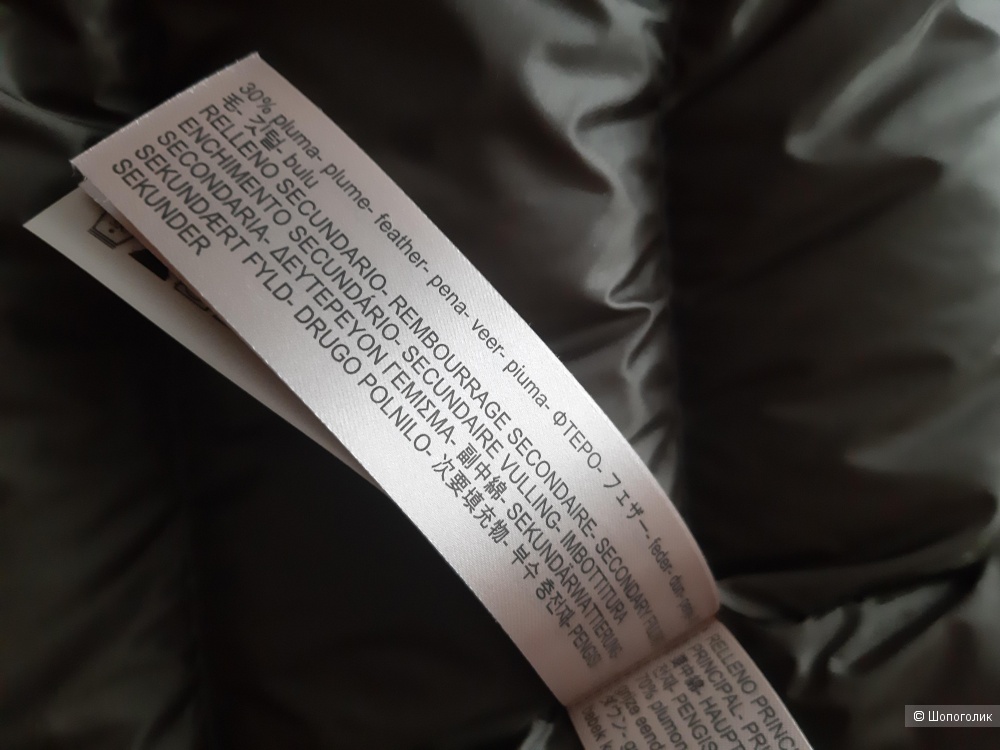 30% pluma- plume- feather- pena- veer- piuma- ΦΤΕΡΟ- フェザー- feder-
毛- 깃털- bulu
RELLENO SECUNDARIO- REMBOURRAGE SECONDAIRE- SECONDARY
ENCHIMENTO SECUNDÁRIO- SECUNDAIRE VULLING- IMBOTTITURA
SECONDARIA- ΔΕΥΤΕΡΕΥΟΝ ΓΕΜΙΣΜΑ- 副中綿- SEKUNDÄRWATTIERUNG
SEKUNDÆRT FYLD- DRUGO POLNILO- 次要填充物- 부수 충전재- PENGISI
SEKUNDER
RELLENO PRINC
PRINCIPAL- PRI
中綿- HAUPT
전재- PENGIS
70% plumon
© Шопоголик